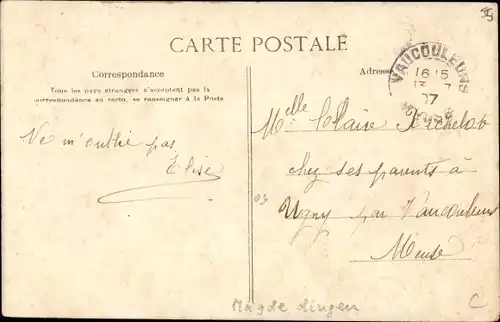 CARTE POSTALE
Correspondance
Tous les pays étrangers n'acceptent pas la
correspondance au recto, se renseigner à la Poste
Adresse
VAUCOULEURS
16 15
13 7
07
MEUSE
Ne m'oublie pas
Elise
Melle Claire
chez ses parents à
Ugny par Vaucouleurs
Meuse
Magde
C